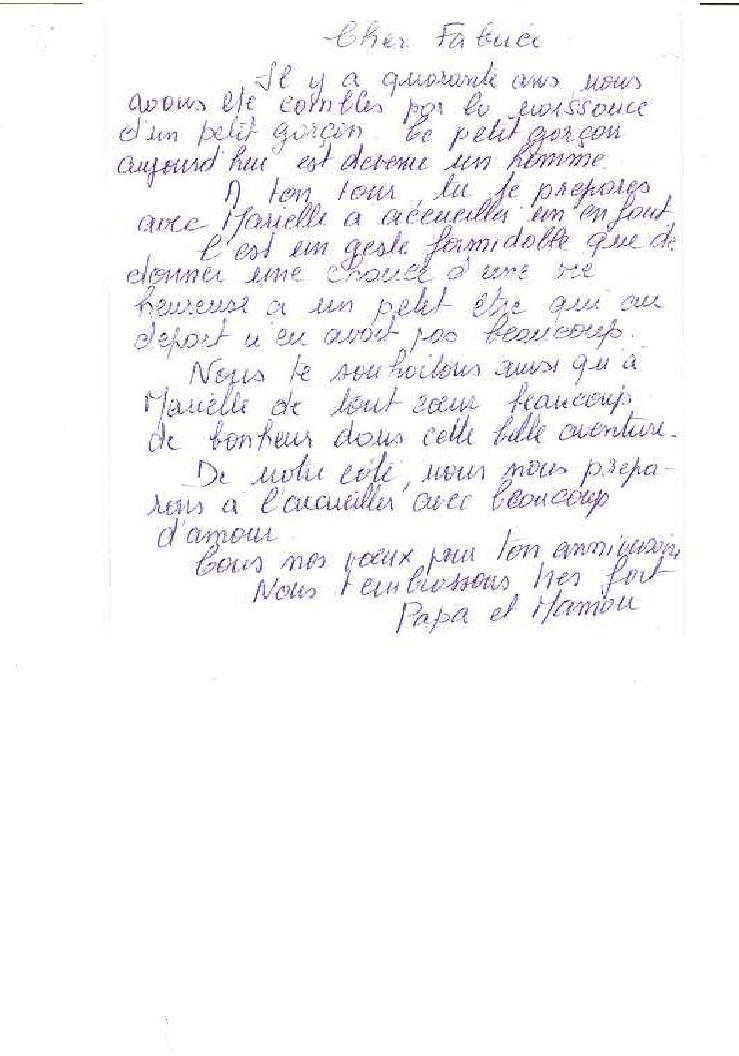 Cher Fabrice
Il y a quarante ans, nous
avons été comblés par la naissance
d'un petit garçon. Ce petit garçon
aujourd'hui est devenu un homme.
A ton tour, tu te prépares
avec Marielle a accueillir un enfant
C'est un geste formidable que de
donner une chance d'une vie
heureuse a un petit être qui au
départ n'en avait pas beaucoup.
Nous te souhaitons ainsi qu'à
Marielle de tout cœur beaucoup
de bonheur dans cette belle aventure.
De notre côté, nous nous prépa-
rons a l'accueillir avec beaucoup
d'amour.
Tous nos vœux pour ton anniversaire
Nous t'embrassons très fort
Papa et Maman